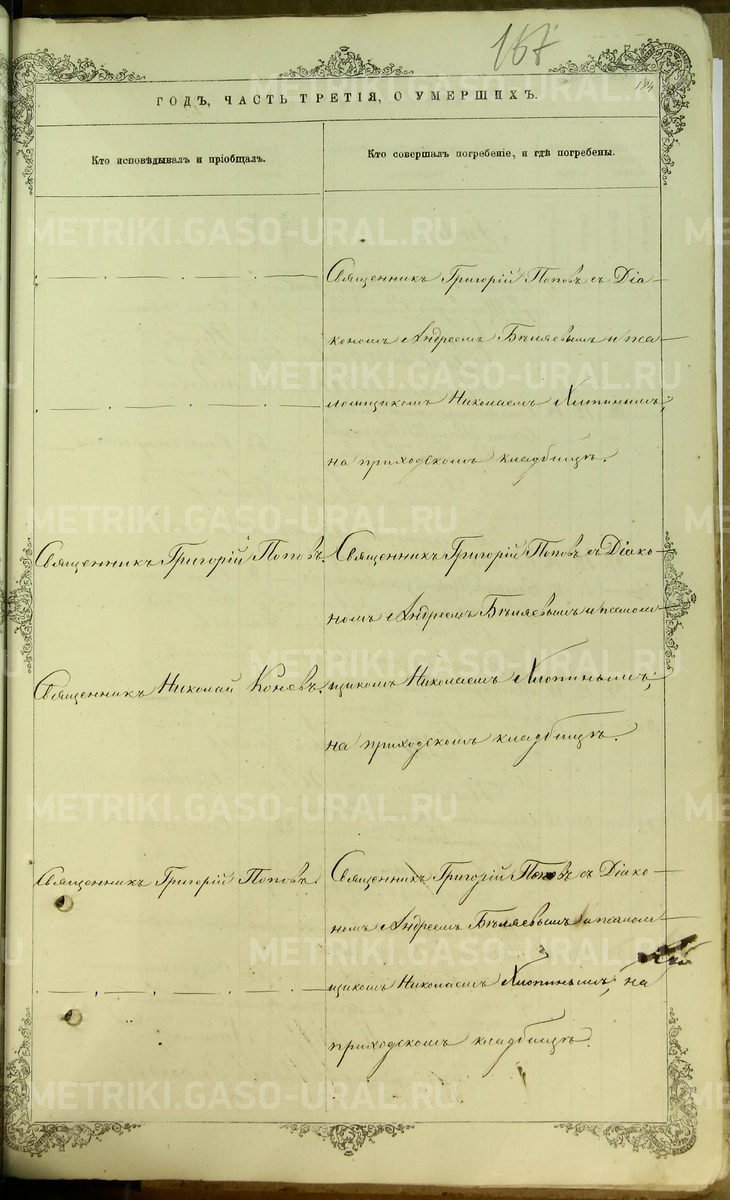 167
184
ГОДЪ, ЧАСТЬ ТРЕТІЯ, О УМЕРШИХЪ.
Кто исповѣдывалъ и пріобщалъ.
Кто совершалъ погребеніе, и гдѣ погребены.
Священникъ Григорій Поповъ съ Діа-
кономъ Андреемъ Бѣляевымъ и пса-
ломщикомъ Николаемъ Хлопинымъ;
на приходскомъ кладбищѣ.
Священникъ Григорій Поповъ.
Священникъ Григорій Поповъ съ Діако-
номъ Андреемъ Бѣляевымъ и псалом-
Священникъ Николай Коневъ.
щикомъ Николаемъ Хлопинымъ;
на приходскомъ кладбищѣ.
Священникъ Григорій Поповъ.
Священникъ Григорій Поповъ съ Діако-
номъ Андреемъ Бѣляевымъ и псалом-
щикомъ Николаемъ Хлопинымъ, на
приходскомъ кладбищѣ.
METRIKI.GASO-URAL.RU